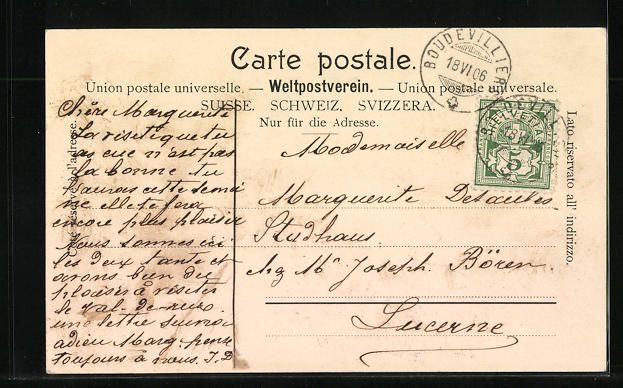 Carte postale.
Union postale universelle. — Weltpostverein. — Unione postale universale.
SUISSE. SCHWEIZ. SVIZZERA.
Nur für die Adresse.
Côté réservé à l'adresse.
Lato riservato all' indirizzo.
BOUDEVILLIERS
18 VI 06
HELVETIA
5
Chère Marguerite
La visite que tu
as eue n'est pas
la bonne tu
l'auras cette semai
ne elle te fera
encore plus plaisir
Nous sommes ici
les deux tante et
avons bien du
plaisir à visiter
le Val-de-Ruz
une lettre suivra
adieu Marg. pense
toujours à nous. J. D
Mademoiselle
Marguerite Desaules
Stadhaus
chez Mr Joseph Bören
Lucerne